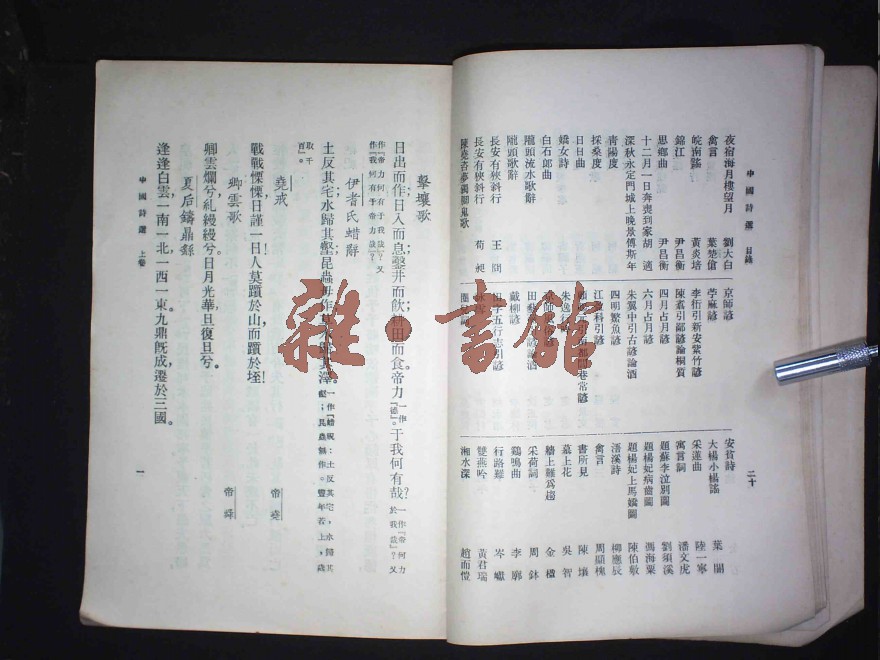 中國詩選 目錄
二十
夜宿海月樓望月 劉大白
禽言 葉楚傖
皖南謠 黃炎培
錦江 尹昌衡
思鄉曲 尹昌衡
十二月一日奔喪到家 胡適
深秋永定門城上晚景 傅斯年
青陽度
採桑度
日日曲
嬌女詩
白石郎曲
隴頭流水歌辭
隴頭歌辭
長安有狹斜行 王冏
長安有狹斜行 荀昶
京師諺
苧麻諺
李衎引新安紫竹諺
陳翥引鄙諺論桐質
四月占月諺
六月占月諺
朱翼中引古諺論酒
四明繁魚諺
戴柳諺
安貧詩 葉闓
大楊小楊謠 陸一寧
采蓮曲 潘文虎
寓言詞 劉須溪
題蘇李泣別圖 馮海粟
題楊妃病齒圖 陳伯敷
題楊妃上馬嬌圖 柳應辰
浯溪詩 周顯槐
禽言 陳壤
書所見 吳智
墓上花 金檖
牆上難爲趨 周鉢
采荷詞 李廓
鷄鳴曲 岑巘
行路難 黃君瑞
雙燕吟 趙而愷
湘水深
擊壤歌
日出而作日入而息;鑿井而飲耕田而食帝力一作『德』。于我何有哉?一作『帝何力於我哉』?又
作『帝力何有于我哉』?又作『我何有于帝力哉』?
伊耆氏蜡辭
土反其宅水歸其壑昆蟲毋作草木歸其澤一作『蜡祝:土反其宅,水歸其壑;昆蟲無作。豐年若上,歲
取千百』。
堯戒 帝堯
戰戰慄慄日謹一日人莫躓於山而躓於垤!
卿雲歌 帝舜
卿雲爛兮糺縵縵兮日月光華旦復旦兮。
夏后鑄鼎繇
逢逢白雲,一南一北,一西一東,九鼎既成遷於三國。
中國詩選 上卷
一
雜·書館